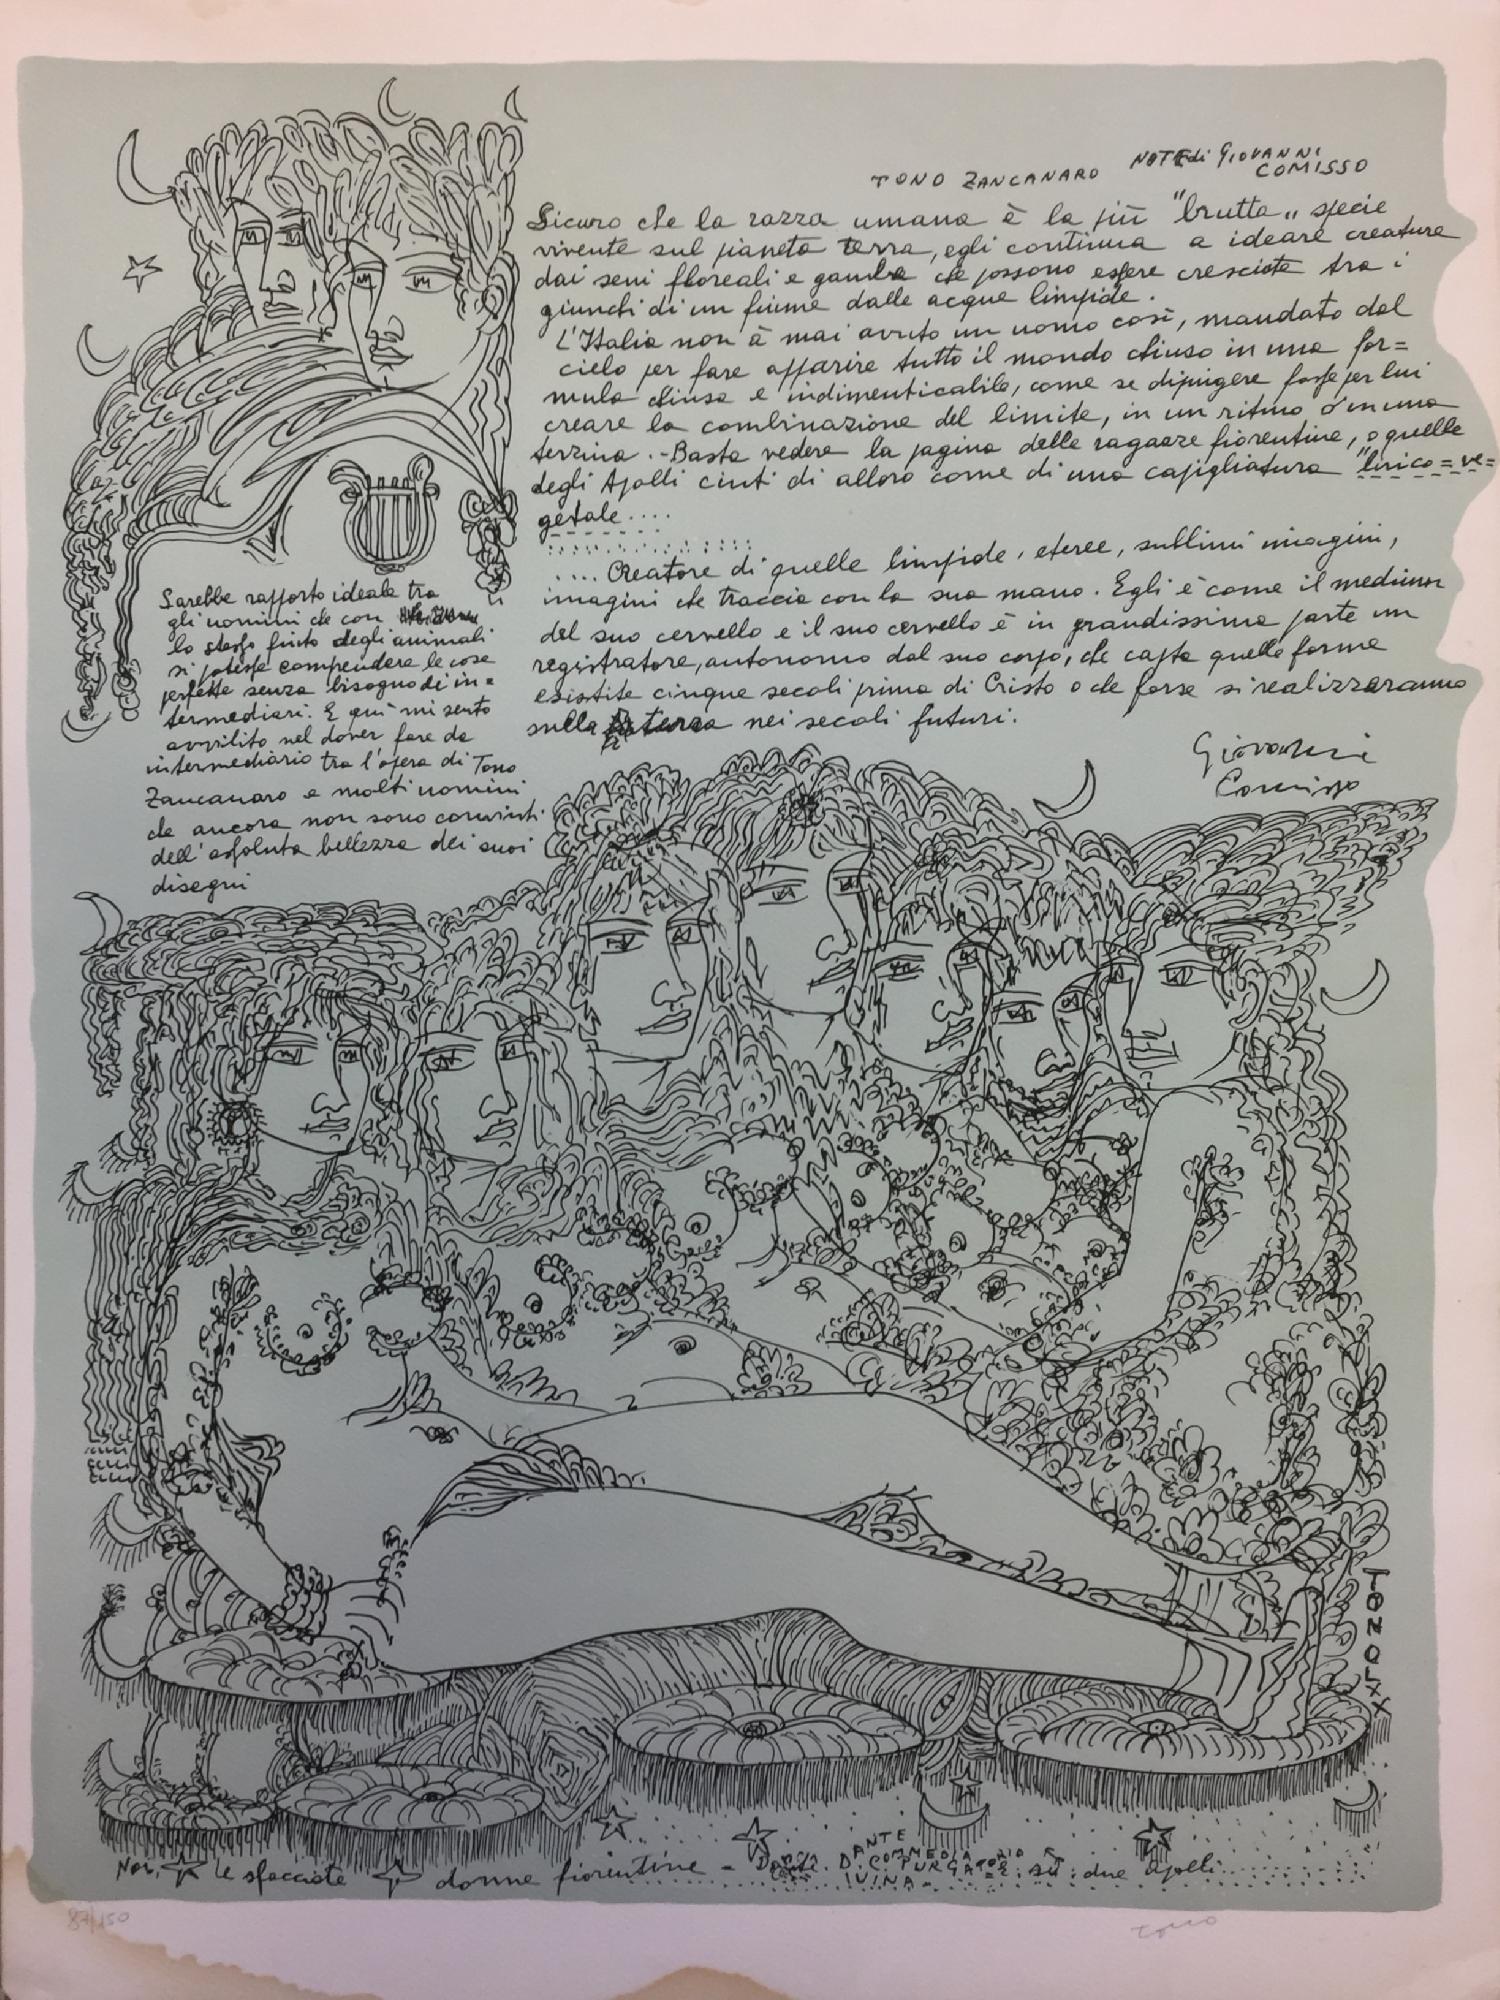 TONO ZANCANARO NOTE di GIOVANNI
COMISSO
Sicuro che la razza umana è la più "brutta" specie
vivente sul pianeta terra, egli continua a ideare creature
dai seni floreali e gambe che possono essere cresciute tra i
giunchi di un fiume dalle acque limpide.
L'Italia non à mai avuto un uomo così, mandato dal
cielo per fare apparire tutto il mondo chiuso in una for=
mula chiusa e indimenticabile, come se dipingere fosse per lui
creare la combinazione del limite, in un ritmo o in una
terzina.-Basta vedere la pagina delle ragazze fiorentine, o quelle
degli Apolli cinti di alloro come di una capigliatura "lirico=ve=
getale....
.... Creatore di quelle limpide, eteree, sublimi imagini,
imagini che traccia con la sua mano. Egli è come il medium
del suo cervello e il suo cervello è in grandissima parte un
registratore, autonomo dal suo corpo, che capta quelle forme
esistite cinque secoli prima di Cristo o che forse si realizzaranno
sulla terra nei secoli futuri.
Giovanni
Comisso
Sarebbe rapporto ideale tra
gli uomini che con
lo stesso fiuto degli animali
si potesse comprendere le cose
perfette senza bisogno di in=
termediari. E qui mi sento
avvilito nel dover fare da
intermediario tra l'opera di Tono
Zancanaro e molti uomini
che ancora non sono convinti
dell'assoluta bellezza dei suoi
disegni
TONO LXX
17
Noi, le sfacciate donne fiorentine - Dante. DANTE D. COMMEDIA PURGATORIO IVINA - su: due Apolli
87/150
Tono